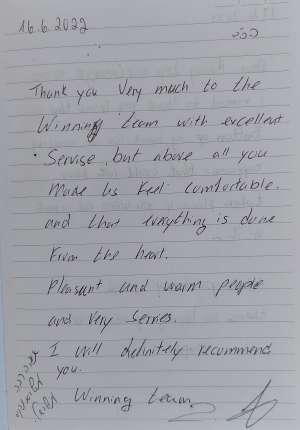 16.6.2022
Thank you Very much to the
Winning team with excellent
Servise, but above all you
Made us Feel Comfortable.
and that everything is done
From the heart.
Pleasant and warm people
and Very Series.
I will definitely recummend
you.
Winning team